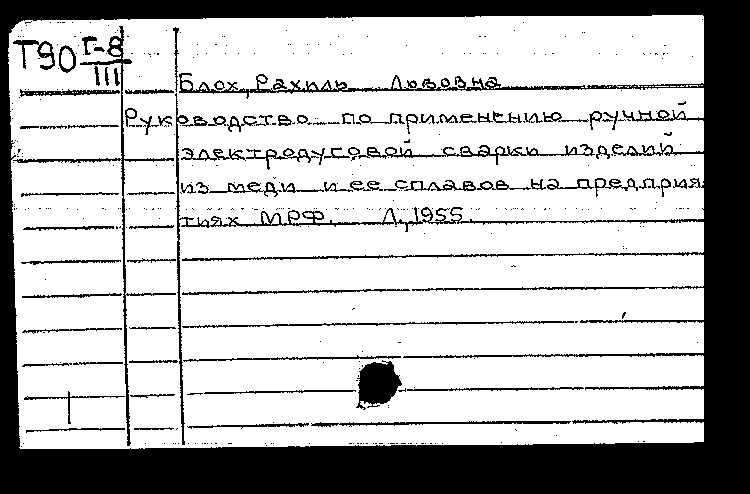 Т90 Г-8
III
Блох, Рахиль Львовна
Руководство по применению ручной
электродуговой сварки изделий
из меди и ее сплавов на предприя
тиях МРФ. Л., 1955.